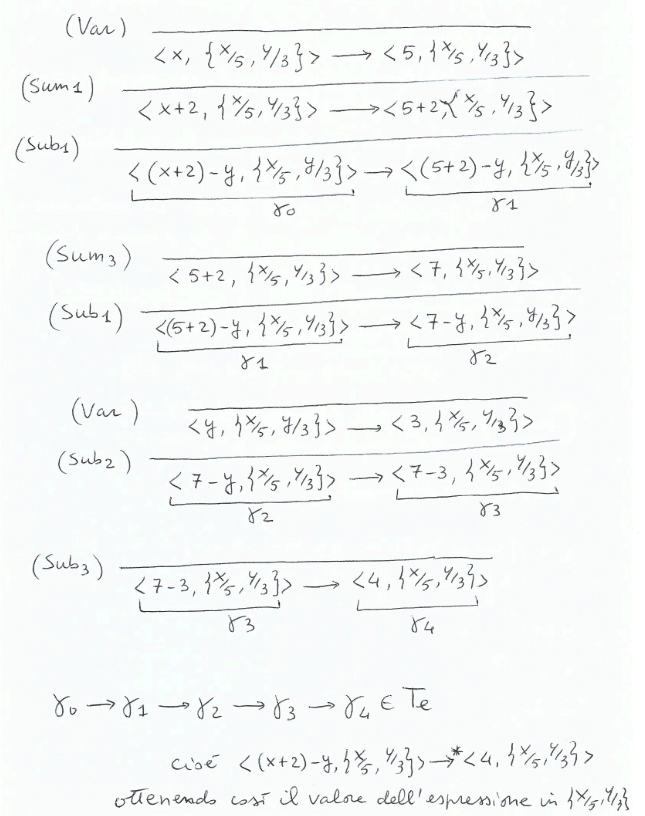 (Var)
<x, {x/5, y/3}> → <5, {x/5, y/3}>
(Sum1)
<x+2, {x/5, y/3}> → <5+2, {x/5, y/3}>
(Sub1)
<(x+2)-y, {x/5, y/3}> → <(5+2)-y, {x/5, y/3}>
γ0 γ1
(Sum3)
<5+2, {x/5, y/3}> → <7, {x/5, y/3}>
(Sub1)
<(5+2)-y, {x/5, y/3}> → <7-y, {x/5, y/3}>
γ1 γ2
(Var)
<y, {x/5, y/3}> → <3, {x/5, y/3}>
(Sub2)
<7-y, {x/5, y/3}> → <7-3, {x/5, y/3}>
γ2 γ3
(Sub3)
<7-3, {x/5, y/3}> → <4, {x/5, y/3}>
γ3 γ4
γ0 → γ1 → γ2 → γ3 → γ4 ∈ Te
cioè <(x+2)-y, {x/5, y/3}> →* <4, {x/5, y/3}>
ottenendo così il valore dell'espressione in {x/5, y/3}